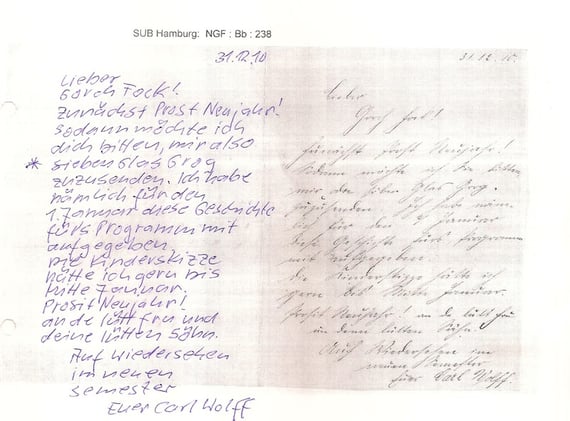 SUB Hamburg: NGF : Bb : 238
31.12.10
Lieber
Gorch Fock!
Zunächst Prost Neujahr!
Sodann möchte ich
dich bitten, mir also
* sieben Glas Grog
zuzusenden. Ich habe
nämlich für den
1. Januar diese Geschichte
fürs Programm mit
aufgegeben.
Die Kinderskizze
hätte ich gern bis
Mitte Januar.
Prosit Neujahr!
an de lütt fru und
deine lütten Söhn.
Auf Wiedersehen
im neuen
Semester
Euer Carl Wolff
31.12.10.
Lieber
Gorch Fock!
Zunächst Prost Neujahr!
Sodann möchte ich Dich bitten
mir also sieben Glas Grog
zuzusenden. Ich habe näm-
lich für den 1. Januar
diese Geschichte fürs Programm
mit aufgegeben.
Die Kinderskizze hätte ich
gern bis Mitte Januar.
Prosit Neujahr! an de lütt fru
un dein lütten Söhn.
Auf Wiedersehen im
neuen Semester
Euer Carl Wolff.